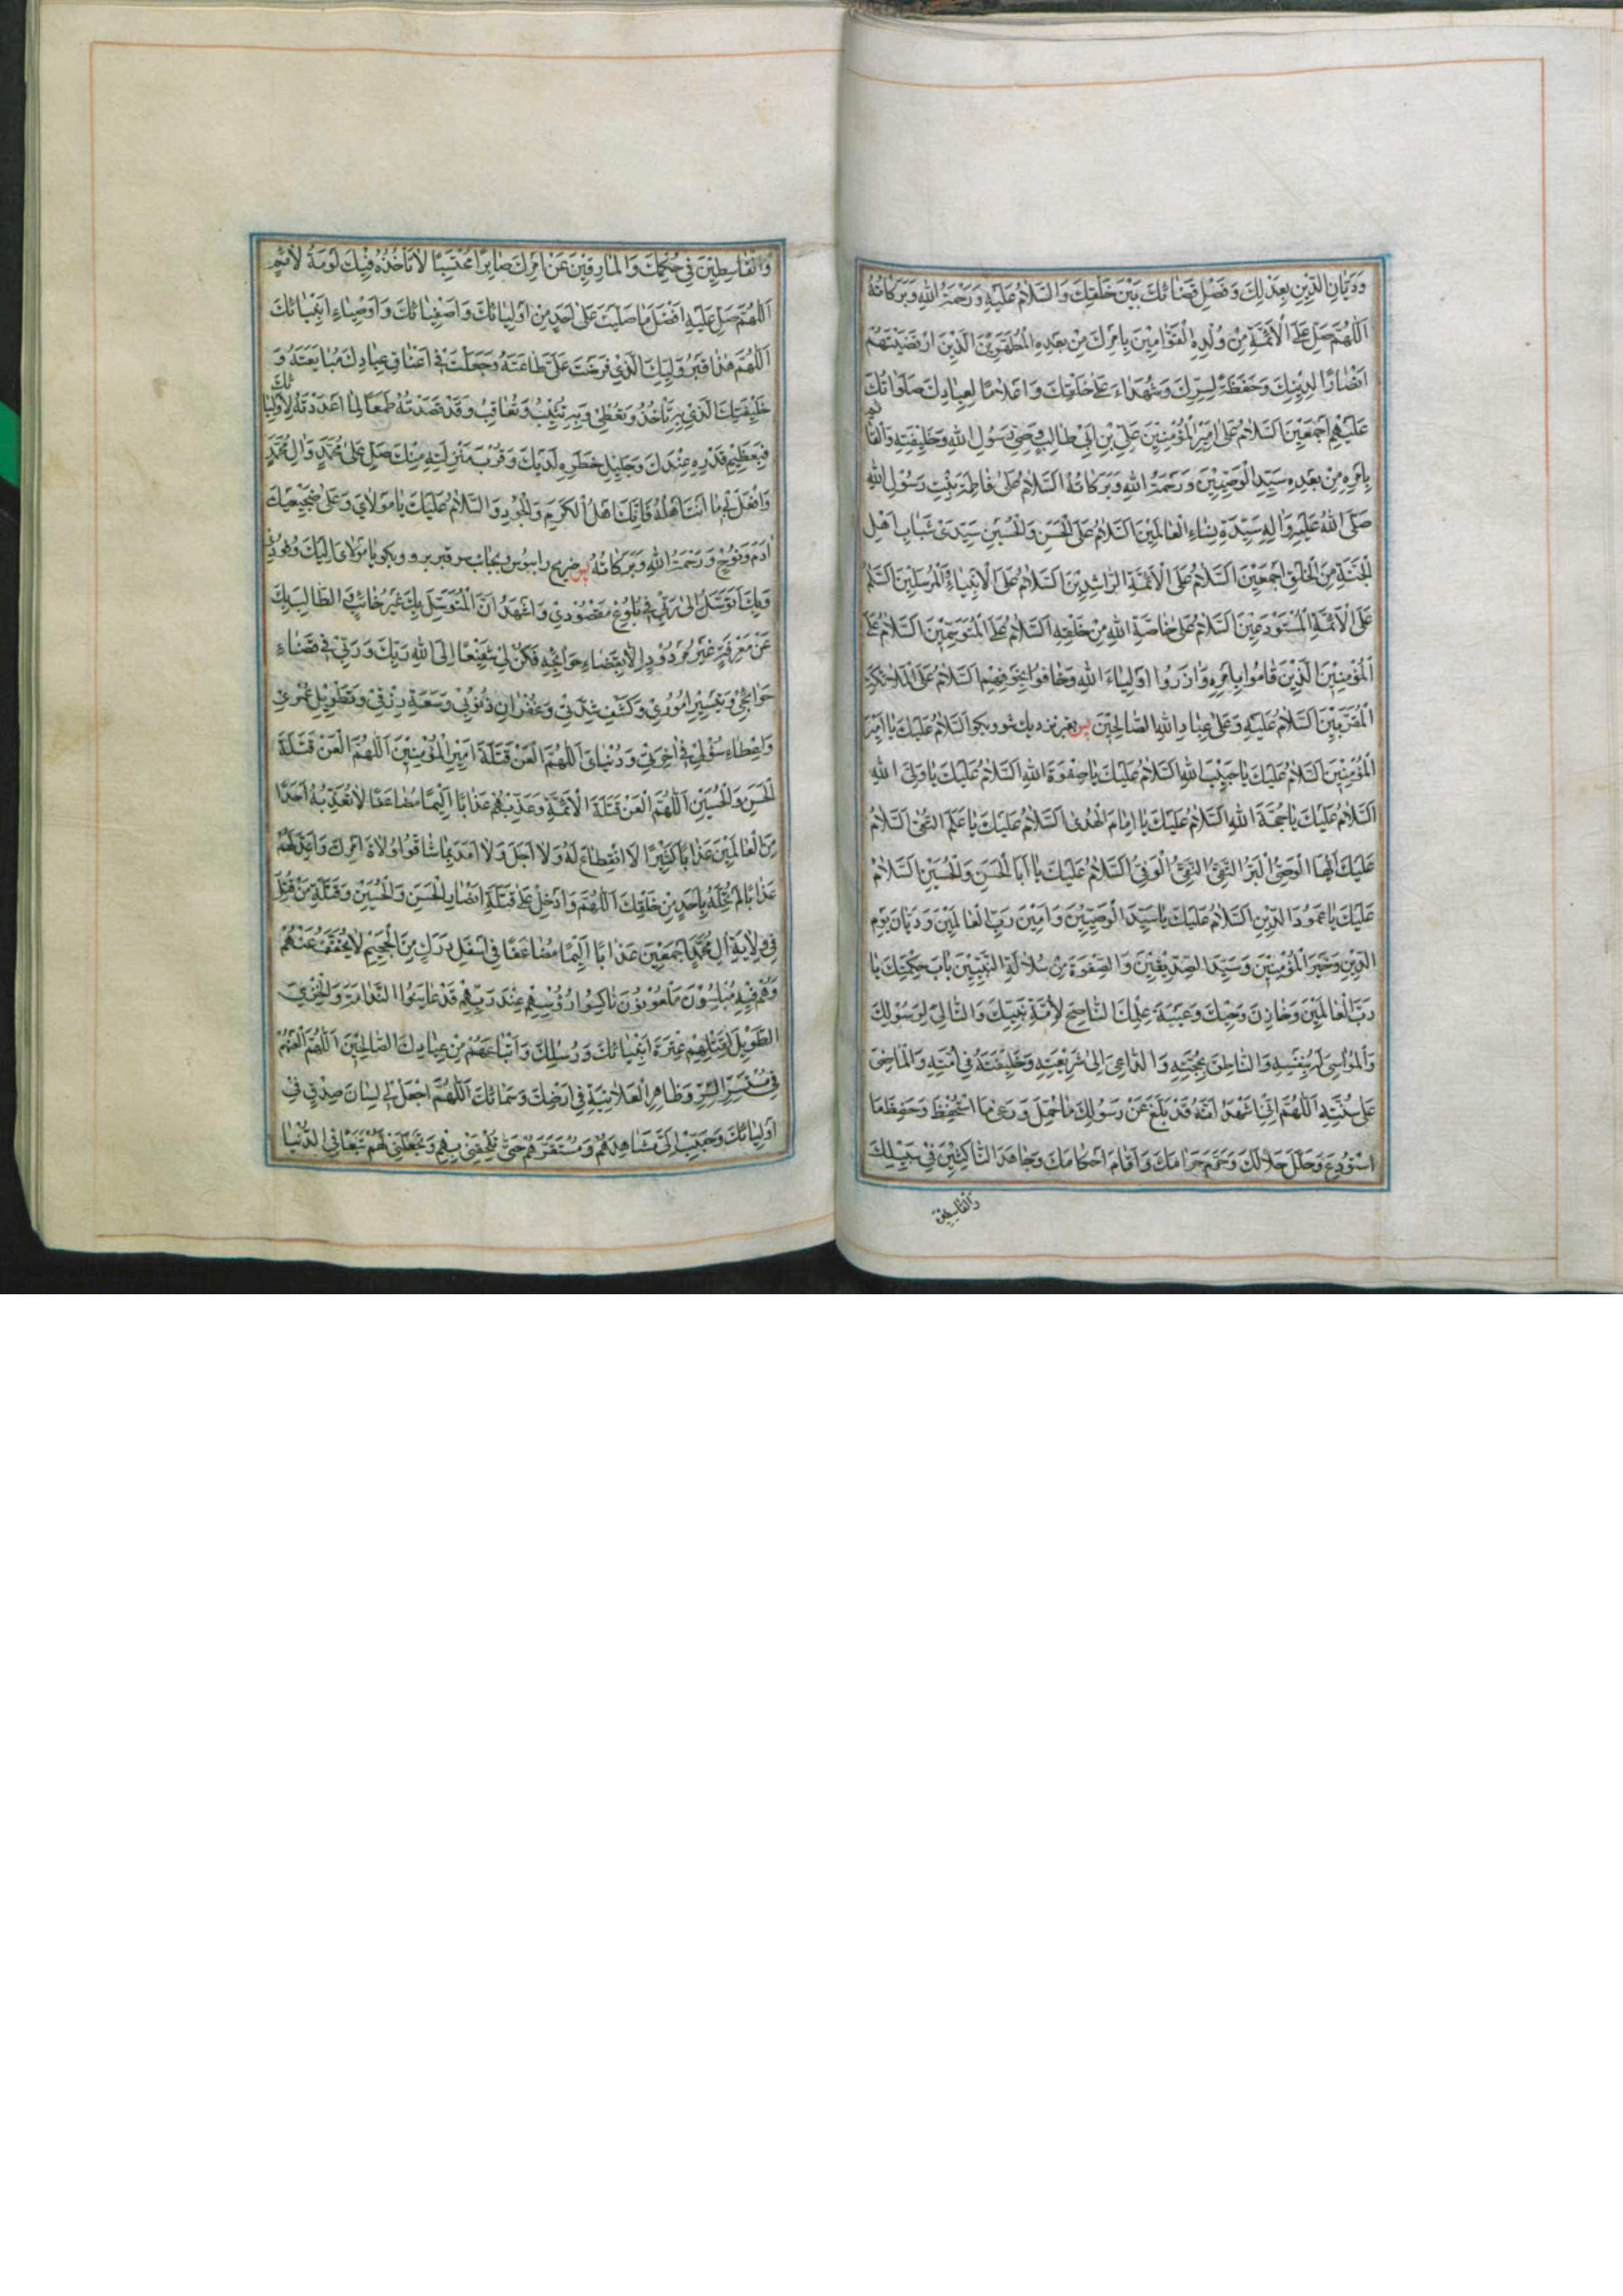 وَدَيَّانِ الدّينِ بِعَدْلِكَ وَفَصْلِ قَضَائِكَ بَيْنَ خَلْقِكَ وَالسَّلَامُ عَلَيْهِ وَرَحْمَةُ اللهِ وَبَرَكَاتُهُ
اَللّهُمَّ صَلِّ عَلَى الْاَئِمَّةِ مِنْ وُلْدِهِ الْقَوَّامِينَ بِاَمْرِكَ مِنْ بَعْدِهِ الْمُطَهَّرِينَ الَّذِينَ ارْتَضَيْتَهُمْ
اَنْصَارًا لِدِينِكَ وَحَفَظَةً لِسِرِّكَ وَشُهَدَاءَ عَلَى خَلْقِكَ وَاَعْلَامًا لِعِبَادِكَ صَلَوَاتُكَ
عَلَيْهِمْ اَجْمَعِينَ اَلسَّلَامُ عَلَى اَمِيرِ الْمُؤْمِنِينَ عَلِيِّ بْنِ اَبِي طَالِبٍ وَصِيِّ رَسُولِ اللهِ وَخَلِيفَتِهِ وَالْقَائِمِ
بِاَمْرِهِ مِنْ بَعْدِهِ سَيِّدِ الْوَصِيِّينَ وَرَحْمَةُ اللهِ وَبَرَكَاتُهُ اَلسَّلَامُ عَلَى فَاطِمَةَ بِنْتِ رَسُولِ اللهِ
صَلَّى اللهُ عَلَيْهِ وَاٰلِهِ سَيِّدَةِ نِسَاءِ الْعَالَمِينَ اَلسَّلَامُ عَلَى الْحَسَنِ وَالْحُسَيْنِ سَيِّدَيْ شَبَابِ اَهْلِ
الْجَنَّةِ مِنَ الْخَلْقِ اَجْمَعِينَ اَلسَّلَامُ عَلَى الْاَئِمَّةِ الرَّاشِدِينَ اَلسَّلَامُ عَلَى الْاَنْبِيَاءِ وَالْمُرْسَلِينَ اَلسَّلَامُ
عَلَى الْاَئِمَّةِ الْمُسْتَوْدَعِينَ اَلسَّلَامُ عَلَى خَاصَّةِ اللهِ مِنْ خَلْقِهِ اَلسَّلَامُ عَلَى الْمُتَوَسِّمِينَ اَلسَّلَامُ عَلَى
الْمُؤْمِنِينَ الَّذِينَ قَامُوا بِاَمْرِهِ وَاٰزَرُوا اَوْلِيَاءَ اللهِ وَخَافُوا بِخَوْفِهِمْ اَلسَّلَامُ عَلَى الْمَلَائِكَةِ
الْمُقَرَّبِينَ اَلسَّلَامُ عَلَيْهِ وَعَلَى عِبَادِ اللهِ الصَّالِحِينَ پس بقبر نزدیك شو و بكو اَلسَّلَامُ عَلَيْكَ يَا اَمِيرَ
الْمُؤْمِنِينَ اَلسَّلَامُ عَلَيْكَ يَا حَبِيبَ اللهِ اَلسَّلَامُ عَلَيْكَ يَا صِفْوَةَ اللهِ اَلسَّلَامُ عَلَيْكَ يَا وَلِيَّ اللهِ
اَلسَّلَامُ عَلَيْكَ يَا حُجَّةَ اللهِ اَلسَّلَامُ عَلَيْكَ يَا اِمَامَ الْهُدَى اَلسَّلَامُ عَلَيْكَ يَا عَلَمَ التُّقَى اَلسَّلَامُ
عَلَيْكَ اَيُّهَا الْوَصِيُّ الْبَرُّ التَّقِيُّ النَّقِيُّ الْوَفِيُّ اَلسَّلَامُ عَلَيْكَ يَا اَبَا الْحَسَنِ وَالْحُسَيْنِ اَلسَّلَامُ
عَلَيْكَ يَا عَمُودَ الدِّينِ اَلسَّلَامُ عَلَيْكَ يَا سَيِّدَ الْوَصِيِّينَ وَاَمِينَ رَبِّ الْعَالَمِينَ وَدَيَّانَ يَوْمِ
الدِّينِ وَخَيْرَ الْمُؤْمِنِينَ وَسَيِّدَ الصِّدِّيقِينَ وَالصِّفْوَةَ مِنْ سُلَالَةِ النَّبِيِّينَ بَابَ حِكْمَتِكَ يَا
رَبَّ الْعَالَمِينَ وَخَازِنَ وَحْيِكَ وَعَيْبَةَ عِلْمِكَ النَّاصِحَ لِاُمَّةِ نَبِيِّكَ وَالتَّالِيَ لِرَسُولِكَ
وَالْمُوَاسِيَ لَهُ بِنَفْسِهِ وَالنَّاطِقَ بِحُجَّتِهِ وَالدَّاعِيَ اِلَى شَرِيعَتِهِ وَخَلِيفَتَهُ فِي اُمَّتِهِ وَالْمَاضِيَ
عَلَى سُنَّتِهِ اَللّهُمَّ اِنِّي اَشْهَدُ اَنَّهُ قَدْ بَلَّغَ عَنْ رَسُولِكَ مَا حُمِّلَ وَرَعَى مَا اسْتُحْفِظَ وَحَفِظَ مَا
اسْتُودِعَ وَحَلَّلَ حَلَالَكَ وَحَرَّمَ حَرَامَكَ وَاَقَامَ اَحْكَامَكَ وَجَاهَدَ النَّاكِثِينَ فِي سَبِيلِكَ
وَالْقَاسِطِينَ
وَالْقَاسِطِينَ فِي حُكْمِكَ وَالْمَارِقِينَ عَنْ اَمْرِكَ صَابِرًا مُحْتَسِبًا لَا تَأْخُذُهُ فِيكَ لَوْمَةُ لَائِمٍ
اَللّهُمَّ صَلِّ عَلَيْهِ اَفْضَلَ مَا صَلَّيْتَ عَلَى اَحَدٍ مِنْ اَوْلِيَائِكَ وَاَصْفِيَائِكَ وَاَوْصِيَاءِ اَنْبِيَائِكَ
اَللّهُمَّ هٰذَا قَبْرُ وَلِيِّكَ الَّذِي فَرَضْتَ عَلَيَّ طَاعَتَهُ وَجَعَلْتَ فِي اَعْنَاقِ عِبَادِكَ مُبَايَعَتَهُ وَ
خَلِيفَتِكَ الَّذِي بِهِ تَأْخُذُ وَتُعْطِي وَبِهِ تُثِيبُ وَتُعَاقِبُ وَقَدْ قَصَدْتُهُ طَمَعًا لِمَا اَعْدَدْتَهُ لِاَوْلِيَائِكَ
فَبِعَظِيمِ قَدْرِهِ عِنْدَكَ وَجَلِيلِ خَطَرِهِ لَدَيْكَ وَقُرْبِ مَنْزِلَتِهِ مِنْكَ صَلِّ عَلَى مُحَمَّدٍ وَاٰلِ مُحَمَّدٍ
وَافْعَلْ بِي مَا اَنْتَ اَهْلُهُ فَاِنَّكَ اَهْلُ الْكَرَمِ وَالْجُودِ وَالسَّلَامُ عَلَيْكَ يَا مَوْلَايَ وَعَلَى ضَجِيعَيْكَ
اٰدَمَ وَنُوحٍ وَرَحْمَةُ اللهِ وَبَرَكَاتُهُ پس ضریح را ببوس و بجانب سر قبر برو و بكو يَا مَوْلَايَ اِلَيْكَ وُفُودِي
وَبِكَ اَتَوَسَّلُ اِلَى رَبِّي فِي بُلُوغِ مَقْصُودِي وَاَشْهَدُ اَنَّ الْمُتَوَسِّلَ بِكَ غَيْرُ خَائِبٍ وَالطَّالِبَ بِكَ
عَنْ مَعْرِفَةٍ غَيْرُ مَرْدُودٍ اِلَّا بِقَضَاءِ حَوَائِجِهِ فَكُنْ لِي شَفِيعًا اِلَى اللهِ رَبِّكَ وَرَبِّي فِي قَضَاءِ
حَوَائِجِي وَتَيْسِيرِ اُمُورِي وَكَشْفِ شِدَّتِي وَغُفْرَانِ ذُنُوبِي وَسَعَةِ رِزْقِي وَتَطْوِيلِ عُمُرِي
وَاِعْطَاءِ سُؤْلِي فِي اٰخِرَتِي وَدُنْيَايَ اَللّهُمَّ الْعَنْ قَتَلَةَ اَمِيرِ الْمُؤْمِنِينَ اَللّهُمَّ الْعَنْ قَتَلَةَ
الْحَسَنِ وَالْحُسَيْنِ اَللّهُمَّ الْعَنْ قَتَلَةَ الْاَئِمَّةِ وَعَذِّبْهُمْ عَذَابًا اَلِيمًا مُضَاعَفًا لَا تُعَذِّبُهُ اَحَدًا
مِنَ الْعَالَمِينَ عَذَابًا كَثِيرًا لَا انْقِطَاعَ لَهُ وَلَا اَجَلَ وَلَا اَمَدَ بِمَا شَاقُّوا وُلَاةَ اَمْرِكَ وَاَعِدَّ لَهُمْ
عَذَابًا لَمْ تُحِلَّهُ بِاَحَدٍ مِنْ خَلْقِكَ اَللّهُمَّ وَاَدْخِلْ عَلَى قَتَلَةِ اَنْصَارِ الْحَسَنِ وَالْحُسَيْنِ وَقَتَلَةِ مَنْ قُتِلَ
فِي وِلَايَةِ اٰلِ مُحَمَّدٍ اَجْمَعِينَ عَذَابًا اَلِيمًا مُضَاعَفًا فِي اَسْفَلِ دَرَكٍ مِنَ الْجَحِيمِ لَا يُخَفَّفُ عَنْهُمْ
وَهُمْ فِيهِ مُبْلِسُونَ مَلْعُونُونَ نَاكِسُوا رُؤُسِهِمْ عِنْدَ رَبِّهِمْ قَدْ عَايَنُوا النَّدَامَةَ وَالْخِزْيَ
الطَّوِيلَ لِقَتْلِهِمْ عِتْرَةَ اَنْبِيَائِكَ وَرُسُلِكَ وَاَتْبَاعَهُمْ مِنْ عِبَادِكَ الصَّالِحِينَ اَللّهُمَّ الْعَنْهُمْ
فِي مُسْتَسِرِّ السِّرِّ وَظَاهِرِ الْعَلَانِيَةِ فِي اَرْضِكَ وَسَمَائِكَ اَللّهُمَّ اجْعَلْ لِي لِسَانَ صِدْقٍ فِي
اَوْلِيَائِكَ وَحَبِّبْ اِلَيَّ مَشَاهِدَهُمْ وَمُسْتَقَرَّهُمْ حَتَّى تُلْحِقَنِي بِهِمْ وَتَجْعَلَنِي لَهُمْ تَبَعًا فِي الدُّنْيَا